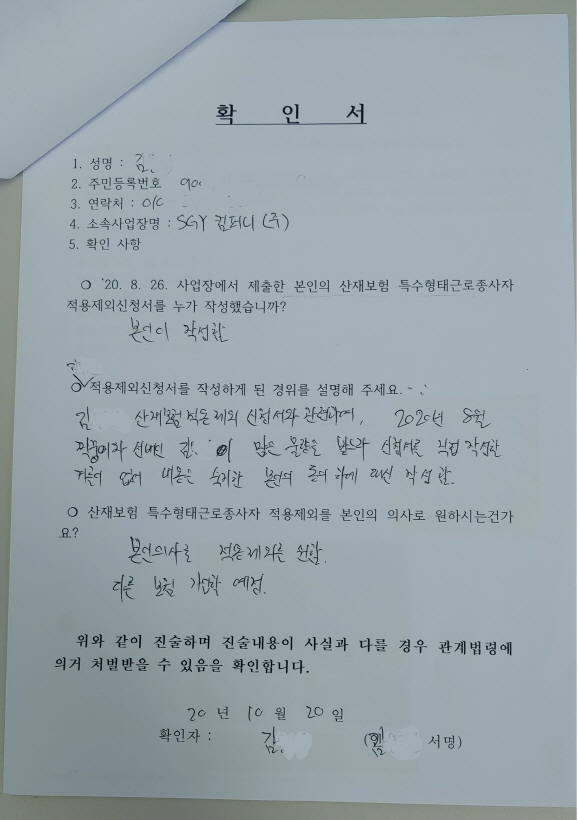 확 인 서
1. 성명 : 김
2. 주민등록번호 90
3. 연락처 : 010
4. 소속사업장명 : SGY 컴퍼니 (주)
5. 확인 사항
○ '20. 8. 26. 사업장에서 제출한 본인의 산재보험 특수형태근로종사자
적용제외신청서를 누가 작성했습니까?
본인이 작성함
○ 적용제외신청서를 작성하게 된 경위를 설명해 주세요.
김 산재보험 적용제외 신청서와 관련하여, 2020년 8월
선배인 김 이 많은 물량을 받느라 신청서를 직접 작성한
겨를이 없어 내용은 숙지한 본인의 동의 하에 대신 작성함.
○ 산재보험 특수형태근로종사자 적용제외를 본인의 의사로 원하시는건가
요?
본인의사로 적용제외를 원함.
다른 보험 가입할 예정.
위와 같이 진술하며 진술내용이 사실과 다를 경우 관계법령에
의거 처벌받을 수 있음을 확인합니다.
20 년 10 월 20 일
확인자 : 김 ( 서명)